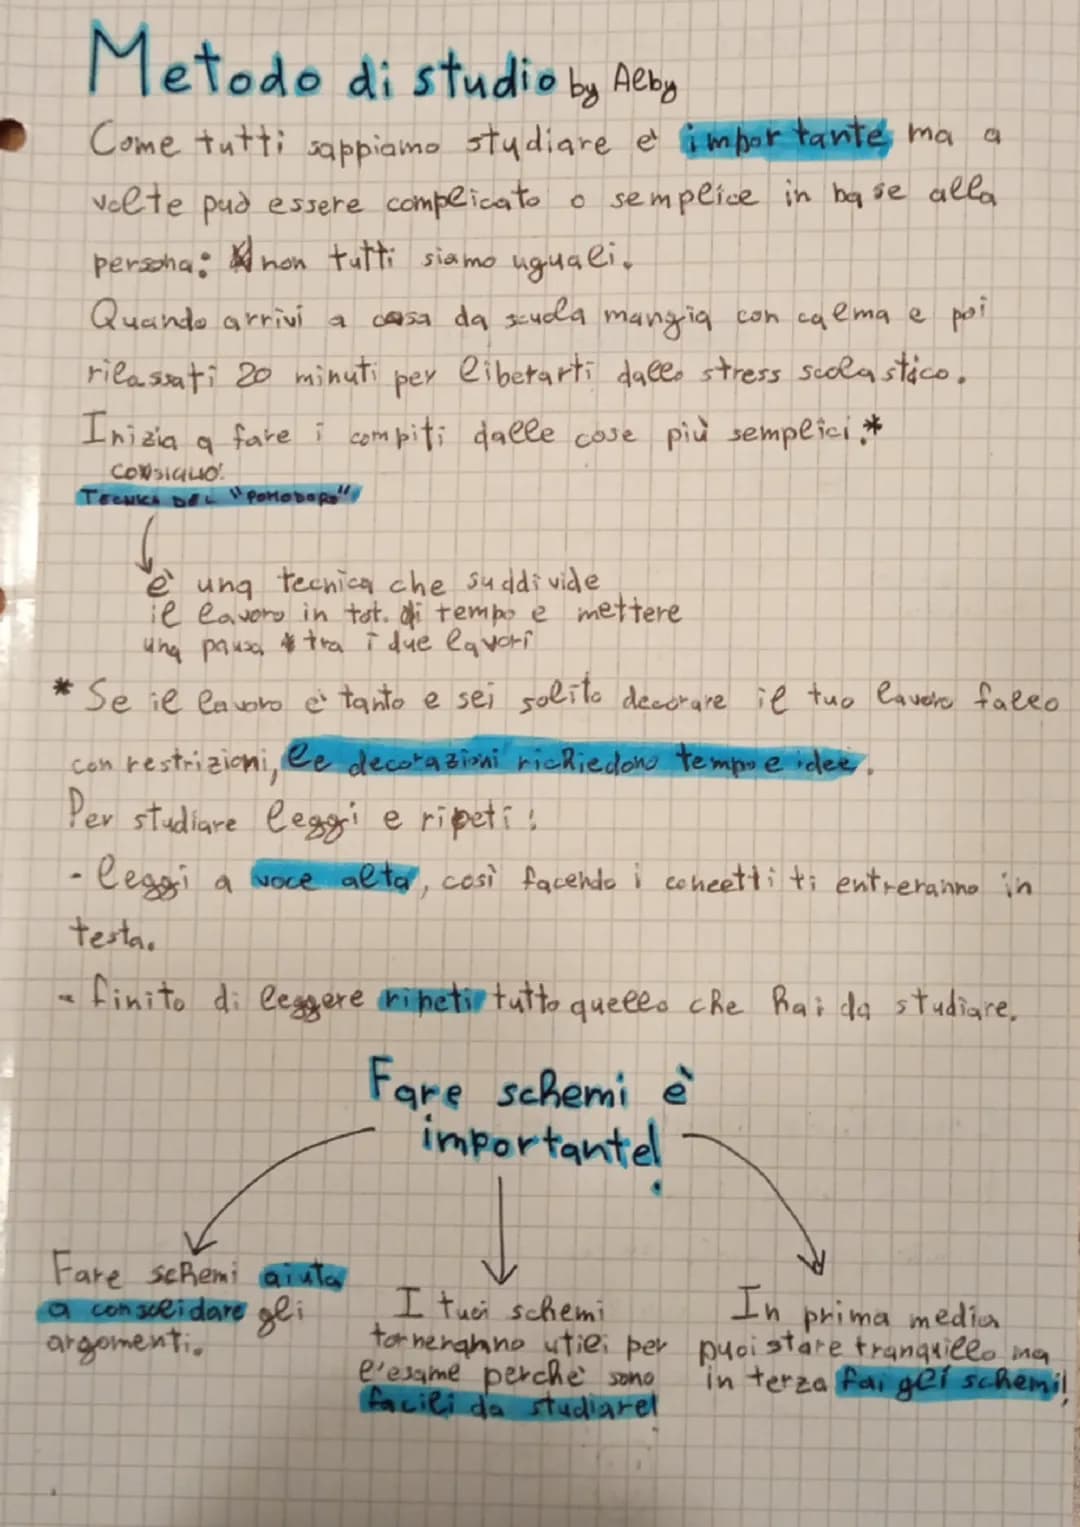 Metodo di studio by Alby
Come tutti sappiamo studiare è importante ma a
volte può essere complicato o semplice in base alla
persona: non tutti siamo uguali.
Quando arrivi a casa da scuola mangia con calma e poi
rilassati 20 minuti per liberarti dallo stress scolastico.
Inizia a fare i compiti dalle cose più semplici.*
CONSIGLIO:
TECNICA DEL "POMODORO"
è una tecnica che suddivide
il lavoro in tot. di tempo e mettere
una pausa tra i due lavori
* Se il lavoro è tanto e sei solito decorare il tuo lavoro fallo
con restrizioni, le decorazioni richiedono tempo e idee.
Per studiare leggi e ripeti:
- leggi a voce alta, così facendo i concetti ti entreranno in
testa.
- finito di leggere ripeti tutto quello che hai da studiare.
Fare schemi è
importante!
Fare schemi aiuta
a consolidare gli
argomenti.
I tuoi schemi
torneranno utili per
l'esame perchè sono
facili da studiare!
In prima media
puoi stare tranquillo ma
in terza fai gli schemi!